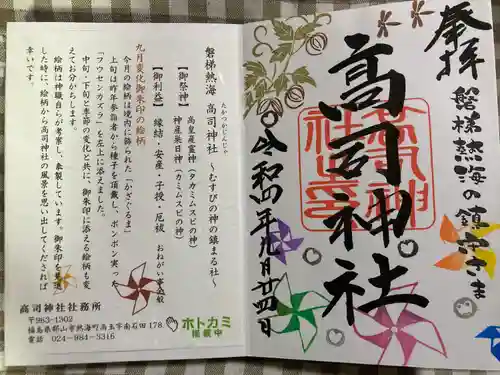 奉拝
磐梯熱海の鎮守さま
高司神社
令和四年九月廿四日
磐梯熱海 高司神社 ～むすびの神の鎮まる社～
たかつかじんじゃ
【御祭神】 高皇産霊神(タカミムスビの神)
神産巣日神(カミムスビの神)
【御利益】 縁結・安産・子授・厄祓 おねがい事全般
九月変化御朱印の絵柄
今月の絵柄は境内に飾られた「かざぐるま」
上旬は昨年参詣者から種子を頂戴し、ポンポン実っ
「フウセンカズラ」を左上に添えました。
中旬・下旬と季節の変化と共に、御朱印に添える絵柄も変
えてお分かちします。
絵柄は神職自らが考案し、奉製しています。御朱印を見返
した時に、絵柄から高司神社の風景を思い出してくだされば
幸いです。
高司神社社務所
〒963-1302
福島県郡山市熱海町高玉字南石田178
電話 024-984-3316
ホトカミ
掲載中